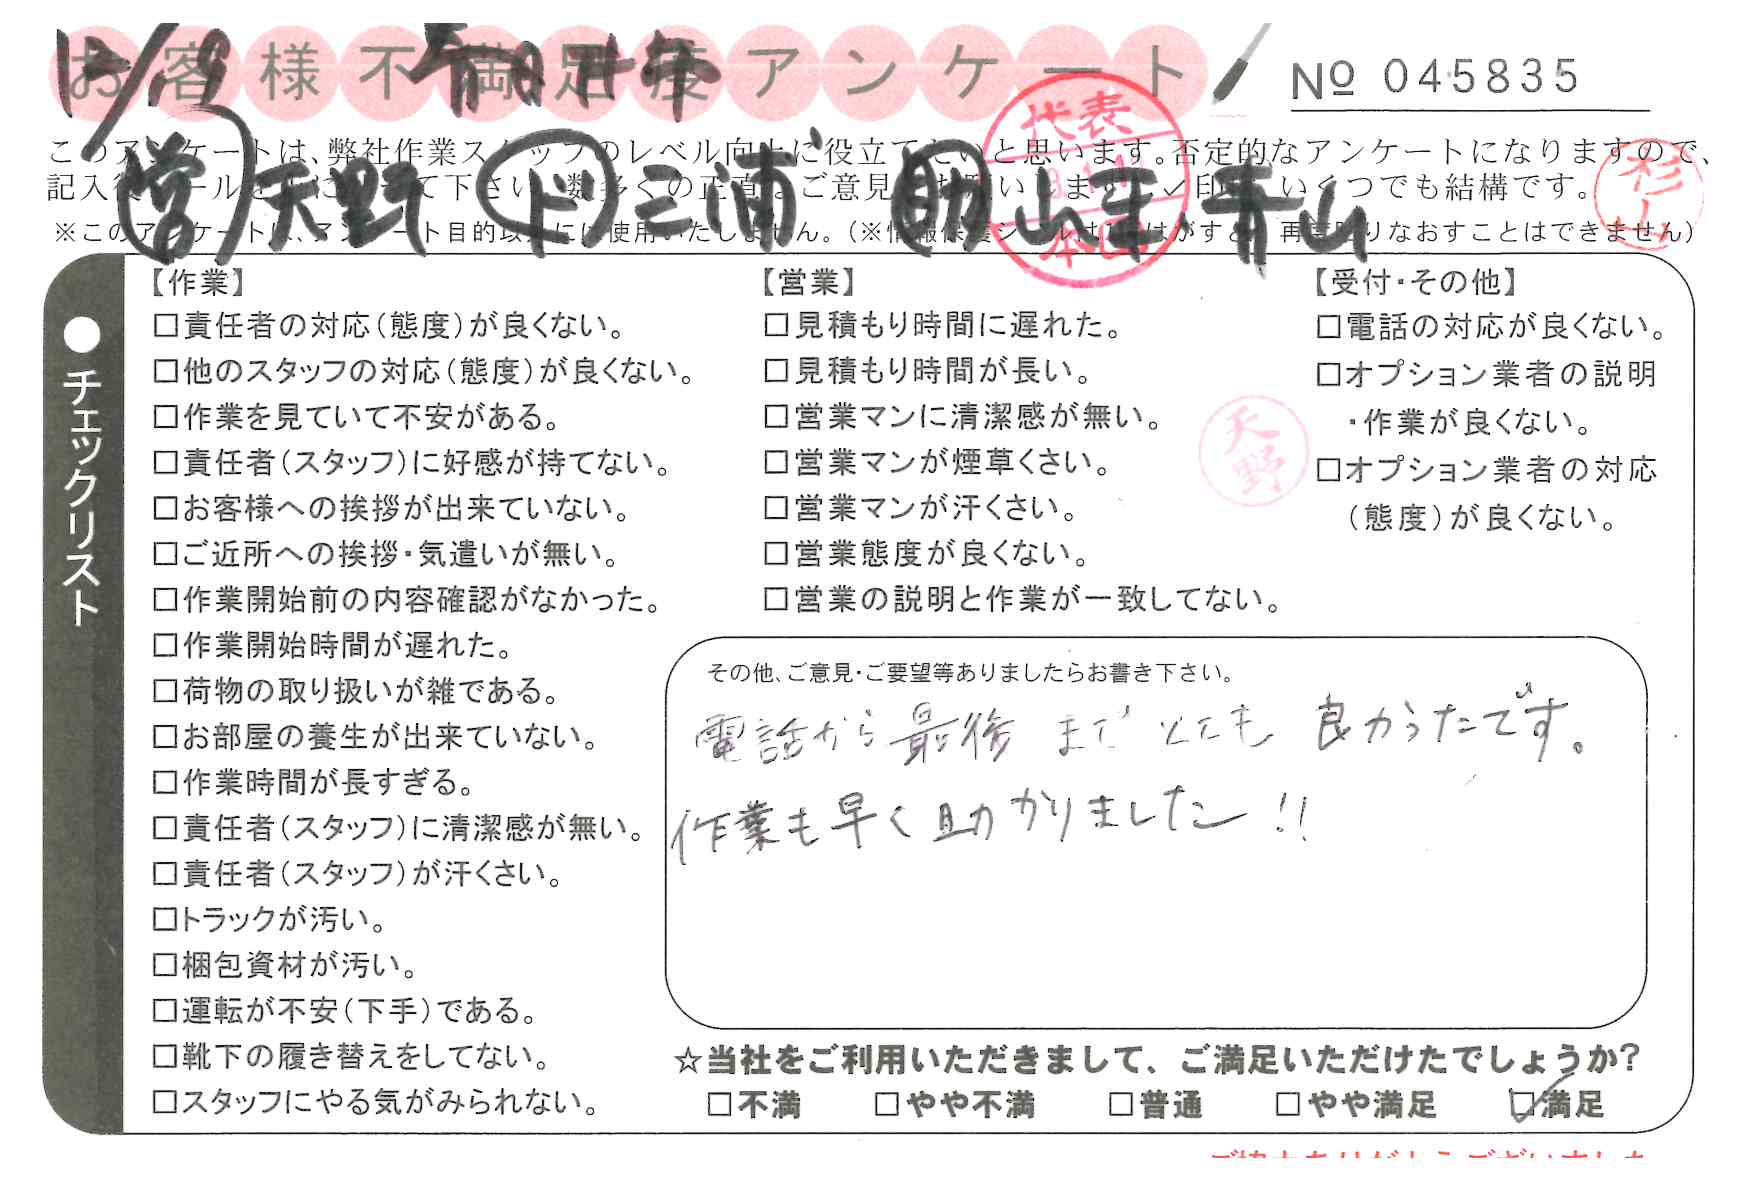 お客様不満足度アンケート
12/13
No 045835
このアンケートは、弊社作業スタッフのレベル向上に役立てたいと思います。否定的なアンケートになりますので、
記入後シールを上にはって下さい。数多くの正直なご意見お願いします。✓印はいくつでも結構です。
※このアンケートは、アンケート目的以外には使用いたしません。(※情報保護シールは1度はがすと、再度貼りなおすことはできません)
営 天野 ド 三浦 助 山峯 青山
代表
杉山
天野
●チェックリスト
【作業】
□責任者の対応(態度)が良くない。
□他のスタッフの対応(態度)が良くない。
□作業を見ていて不安がある。
□責任者(スタッフ)に好感が持てない。
□お客様への挨拶が出来ていない。
□ご近所への挨拶・気遣いが無い。
□作業開始前の内容確認がなかった。
□作業開始時間が遅れた。
□荷物の取り扱いが雑である。
□お部屋の養生が出来ていない。
□作業時間が長すぎる。
□責任者(スタッフ)に清潔感が無い。
□責任者(スタッフ)が汗くさい。
□トラックが汚い。
□梱包資材が汚い。
□運転が不安(下手)である。
□靴下の履き替えをしてない。
□スタッフにやる気がみられない。
【営業】
□見積もり時間に遅れた。
□見積もり時間が長い。
□営業マンに清潔感が無い。
□営業マンが煙草くさい。
□営業マンが汗くさい。
□営業態度が良くない。
□営業の説明と作業が一致してない。
【受付・その他】
□電話の対応が良くない。
□オプション業者の説明
・作業が良くない。
□オプション業者の対応
(態度)が良くない。
その他、ご意見・ご要望等ありましたらお書き下さい。
電話から最後までとても良かったです。
作業も早く助かりました!!
☆当社をご利用いただきまして、ご満足いただけたでしょうか?
□不満 □やや不満 □普通 □やや満足 ☑満足
ご協力ありがとうございました